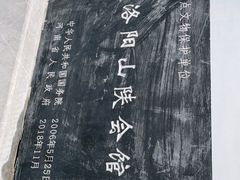 点文物保护单位
洛阳山陕会馆
中华人民共和国国务院
2006年5月25日
河南省人民政府
2018年11月